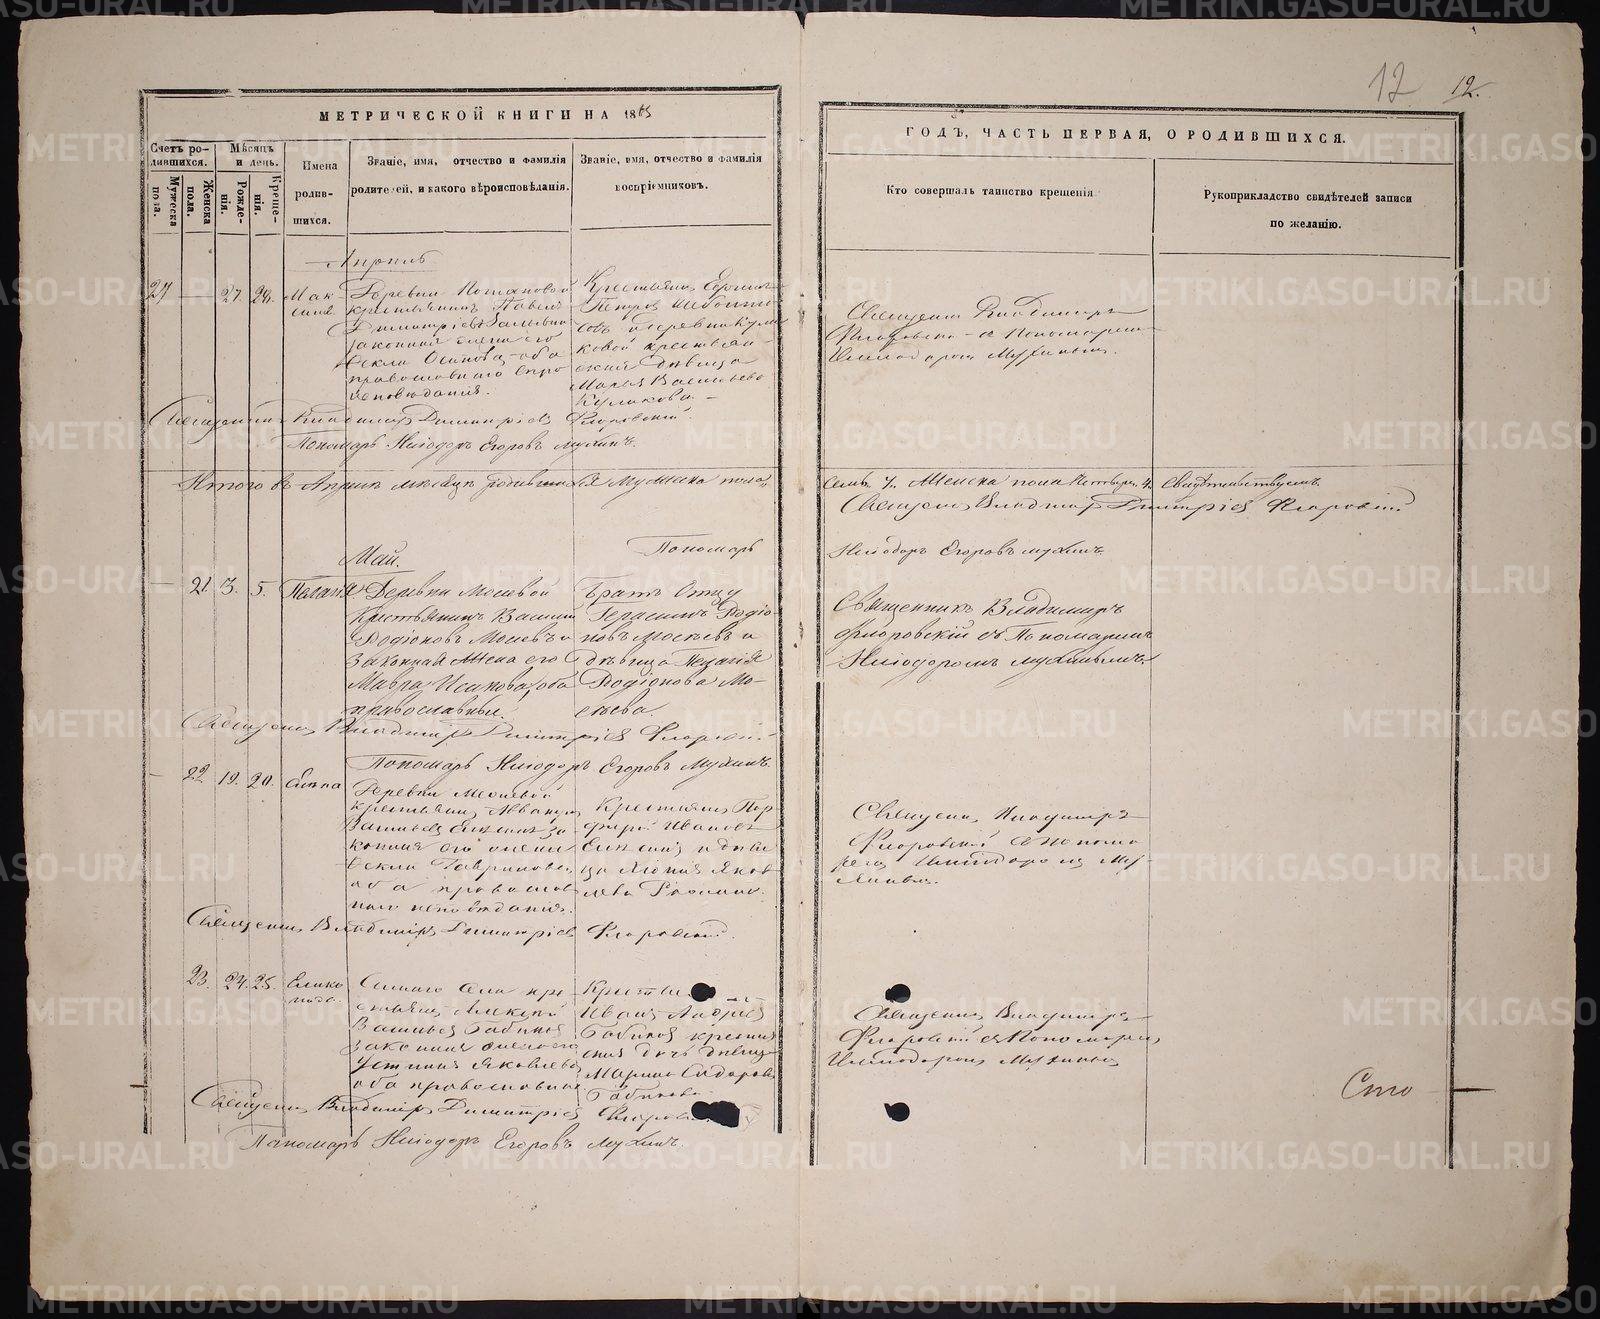 12 12.
МЕТРИЧЕСКОЙ КНИГИ НА 1865
ГОДЪ, ЧАСТЬ ПЕРВАЯ, О РОДИВШИХСЯ.
Счетъ ро-
дившихся.
Мужеска
пола.
Женска
пола.
Мѣсяцъ
и день.
Рожде-
нія.
Креще-
нія.
Имена
родив-
шихся.
Званіе, имя, отчество и фамилія
родителей, и какого вѣроисповѣданія.
Званіе, имя, отчество и фамилія
воспріемниковъ.
Кто совершалъ таинство крещенія
Рукоприкладство свидѣтелей записи
по желанію.
Апрель
27 — 27. 28. Мак-
симъ
Деревни Потаповой
крестьянинъ Павелъ
законная жена его
Ѳекла Осипова, оба
православнаго
исповѣданія.
Крестьянинъ
Петровъ
ковой крестьян-
ская дѣвица
Марья Васильева
Куликова. —
Священникъ Владимиръ
Флоровскій съ Пономаремъ
Иліодоромъ Мухинымъ.
Священникъ Владимиръ Димитріевъ Флоровскій.
Пономарь Иліодоръ Егоровъ Мухинъ.
Итого въ Апрѣлѣ мѣсяцѣ родившихся Мужеска пола
семь 7. Женска пола четыре 4. Свидѣтельствуемъ
Священникъ Владимиръ Димитріевъ Флоровскій
Пономарь
Иліодоръ Егоровъ Мухинъ.
Май.
— 21. 3. 5. Пелагія
Деревни Мосеевой
Крестьянинъ Василій
Родіоновъ Мосеевъ и
Законная Жена его
Мавра Исакова, оба
православные.
Братъ Отцу
Герасимъ Родіо-
новъ Мосеевъ и
дѣвица Пелагія
Родіонова Мо-
сеева.
Священникъ Владимиръ
Флоровскій съ Пономаремъ
Иліодоромъ Мухинымъ.
Священникъ Владимиръ Димитріевъ Флоровскій
Пономарь Иліодоръ Егоровъ Мухинъ.
— 22 19. 20. Елена
Деревни Мосеевой
крестьянинъ Аввакумъ
Васильевъ за
конная его жена
Ѳекла Гаврилова,
оба православ
наго исповѣданія.
Крестьянинъ Пор
фирій Ивановъ
и дѣви
ца Яков
лева
Священникъ Владимиръ
Флоровскій съ Пономаремъ
Иліодоромъ Му-
хинымъ.
Священникъ Владимиръ Димитріевъ Флоровскій.
23. 24. 25. Елико
нида.
Сего Села кре-
стьянинъ Алексѣй
Васильевъ Бабиновъ
законная жена его
Устинья Яковлева
оба православные.
Иванъ Андреевъ
Бабиновъ крестьян
ская дочь дѣвица
Марина Сидорова
Бабинова
Священникъ Владимиръ
Флоровскій съ Пономаремъ
Иліодоромъ Мухинымъ
Сто
Священникъ Владимиръ Димитріевъ
Пономарь Иліодоръ Егоровъ Мухинъ.
METRIKI.GASO-URAL.RU